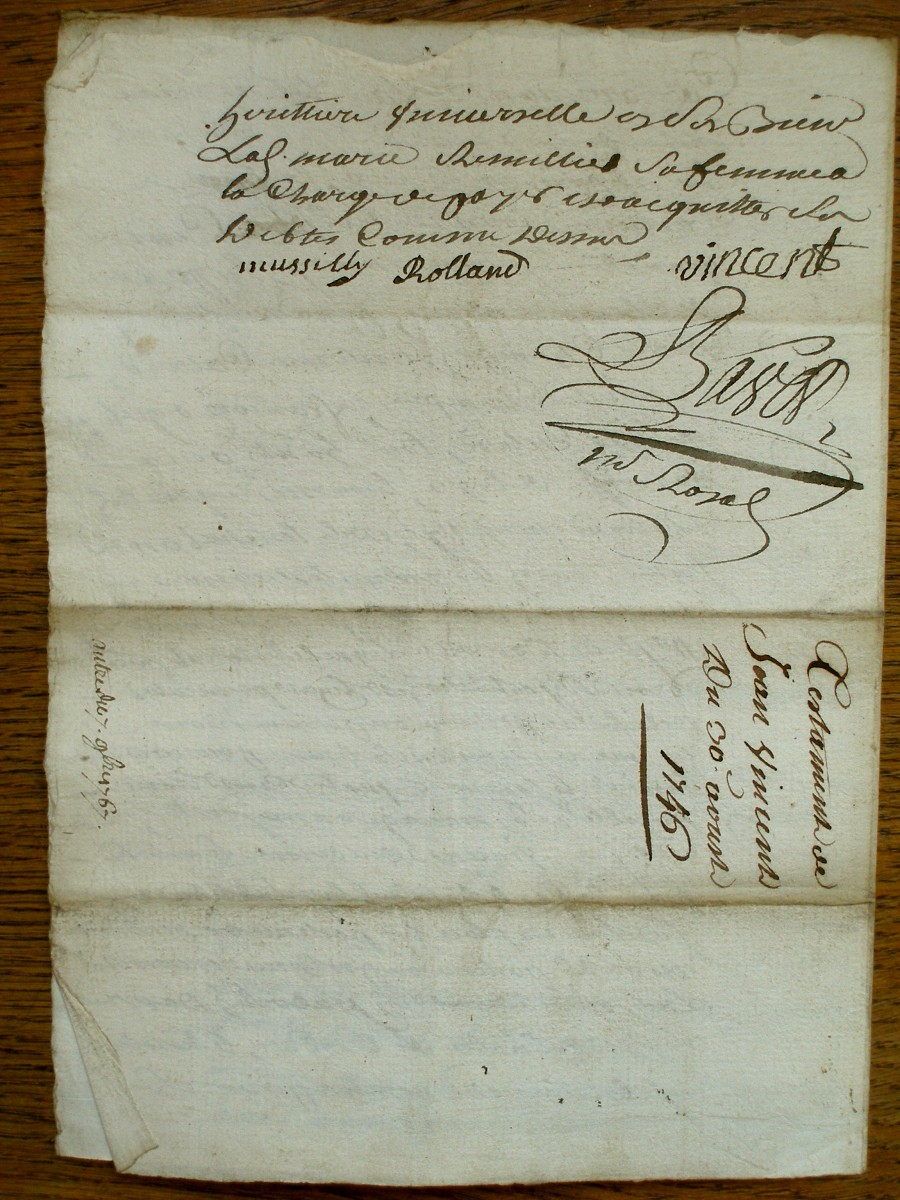 heritiere Universelle es ses Biens
Lad. marie Remillier sa femme a
la Charge de payer et acquitter ses
Debtes Comme Dessus
mussilly Rolland vincent
nre Royal
Testament de
Jean Vincent
Du 30 aoust
1746
du 7. 9bre 1767.